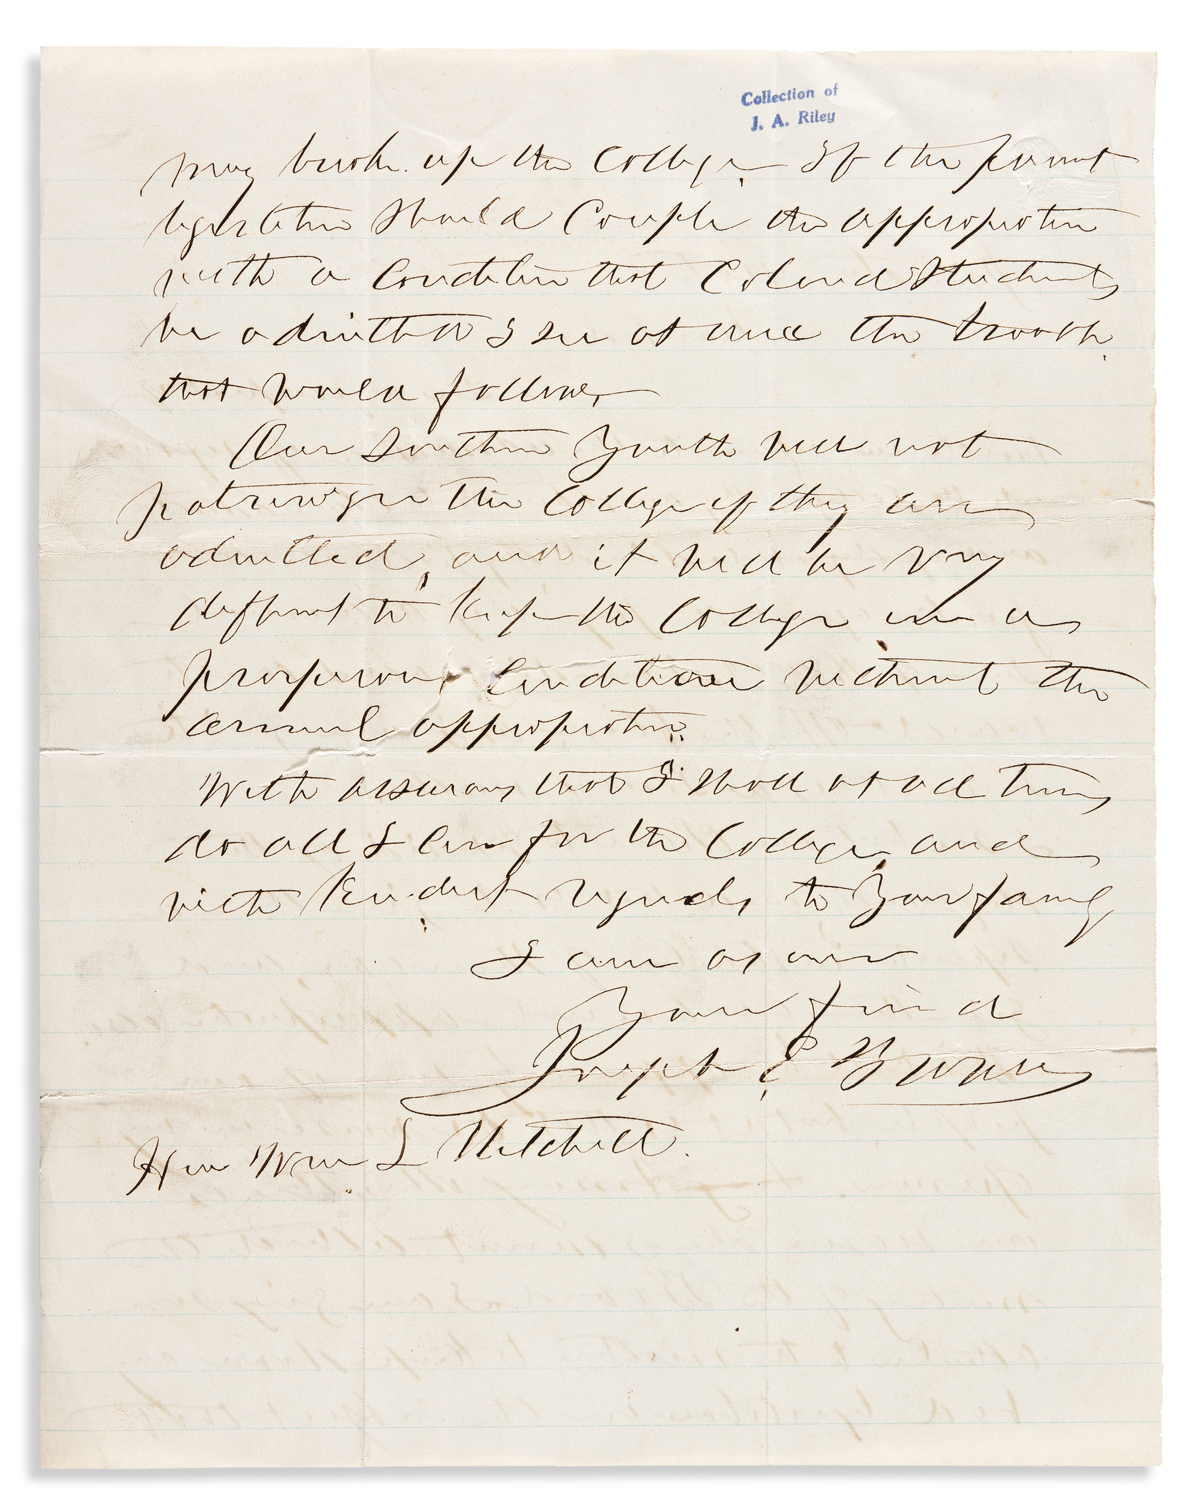 Collection of
J. A. Riley
may break up the College. If the present
legislature should couple the appropriation
with a condition that Colored Students
be admitted I see at once the trouble
that would follow.
Our Southern Youth will not
patronize the College if they are
admitted, and it will be very
difficult to keep the College in a
prosperous condition without the
annual appropriation.
With assurance that I shall at all times
do all I can for the College and
with kindest regards to your family
I am as ever
Your friend
Joseph E Brown
Hon Wm L Mitchell.